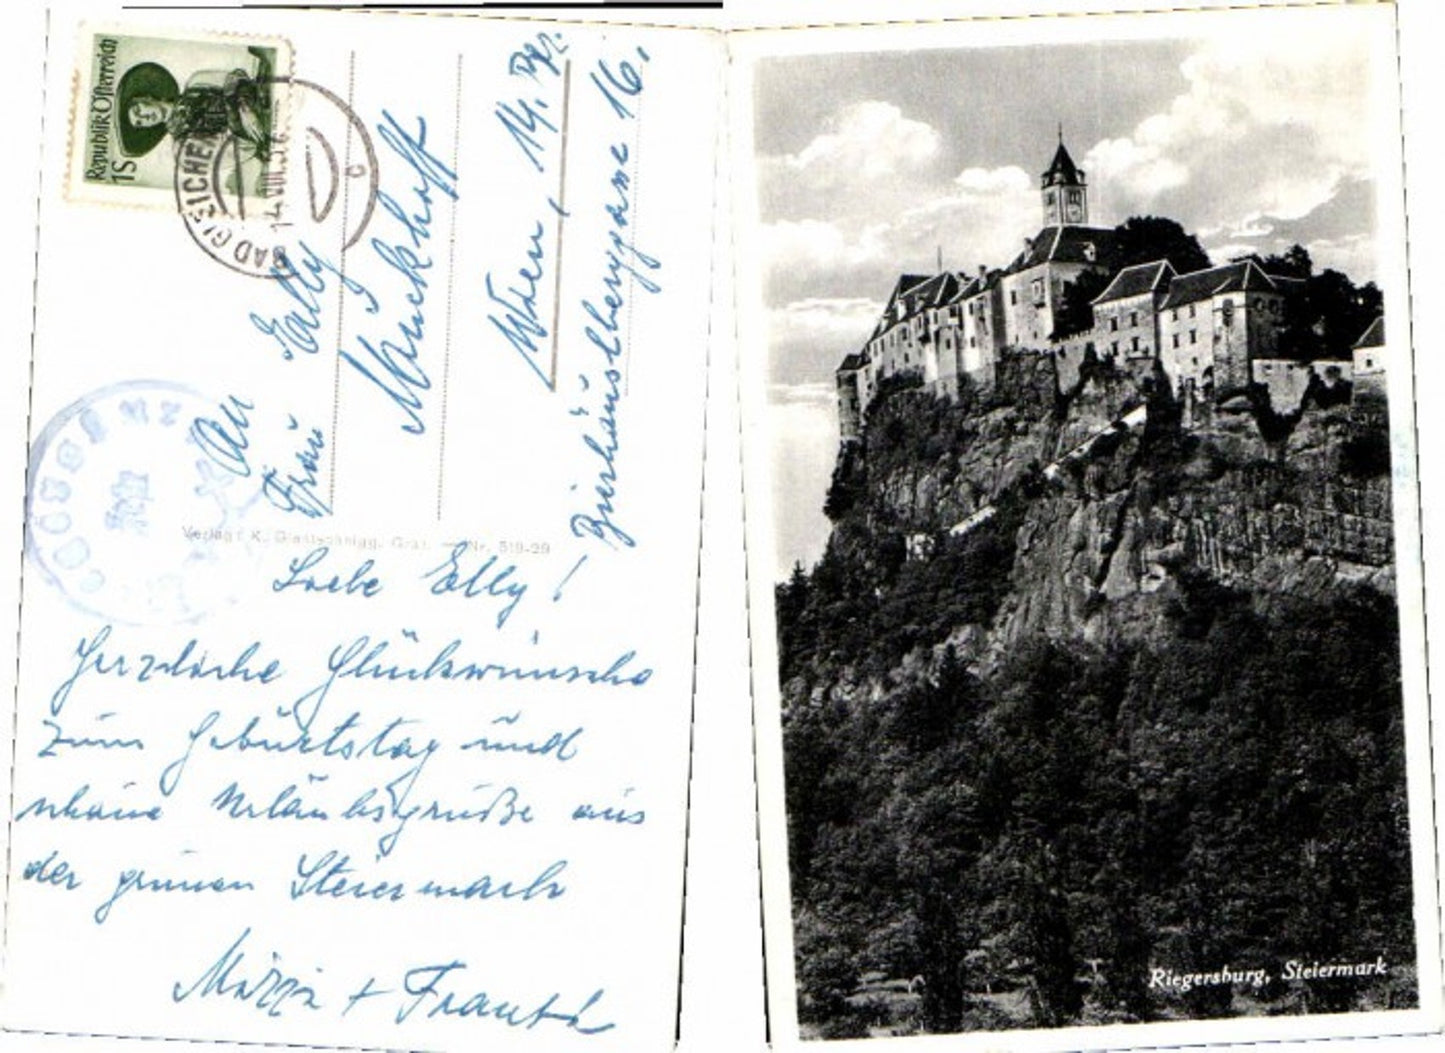 Republik Österreich
1S
BAD GLEICHEN
An
Frau Elly
Mauckhoff
Wien, 14. Bez.
Bierhäuselberggasse 16.
Verlag: K. Glantschnigg, Graz. — Nr. 519-29
Liebe Elly!
Herzliche Glückwünsche
zum Geburtstag und
schöne Urlaubsgrüße aus
der grünen Steiermark
Mizzi + Frantzl
Riegersburg, Steiermark